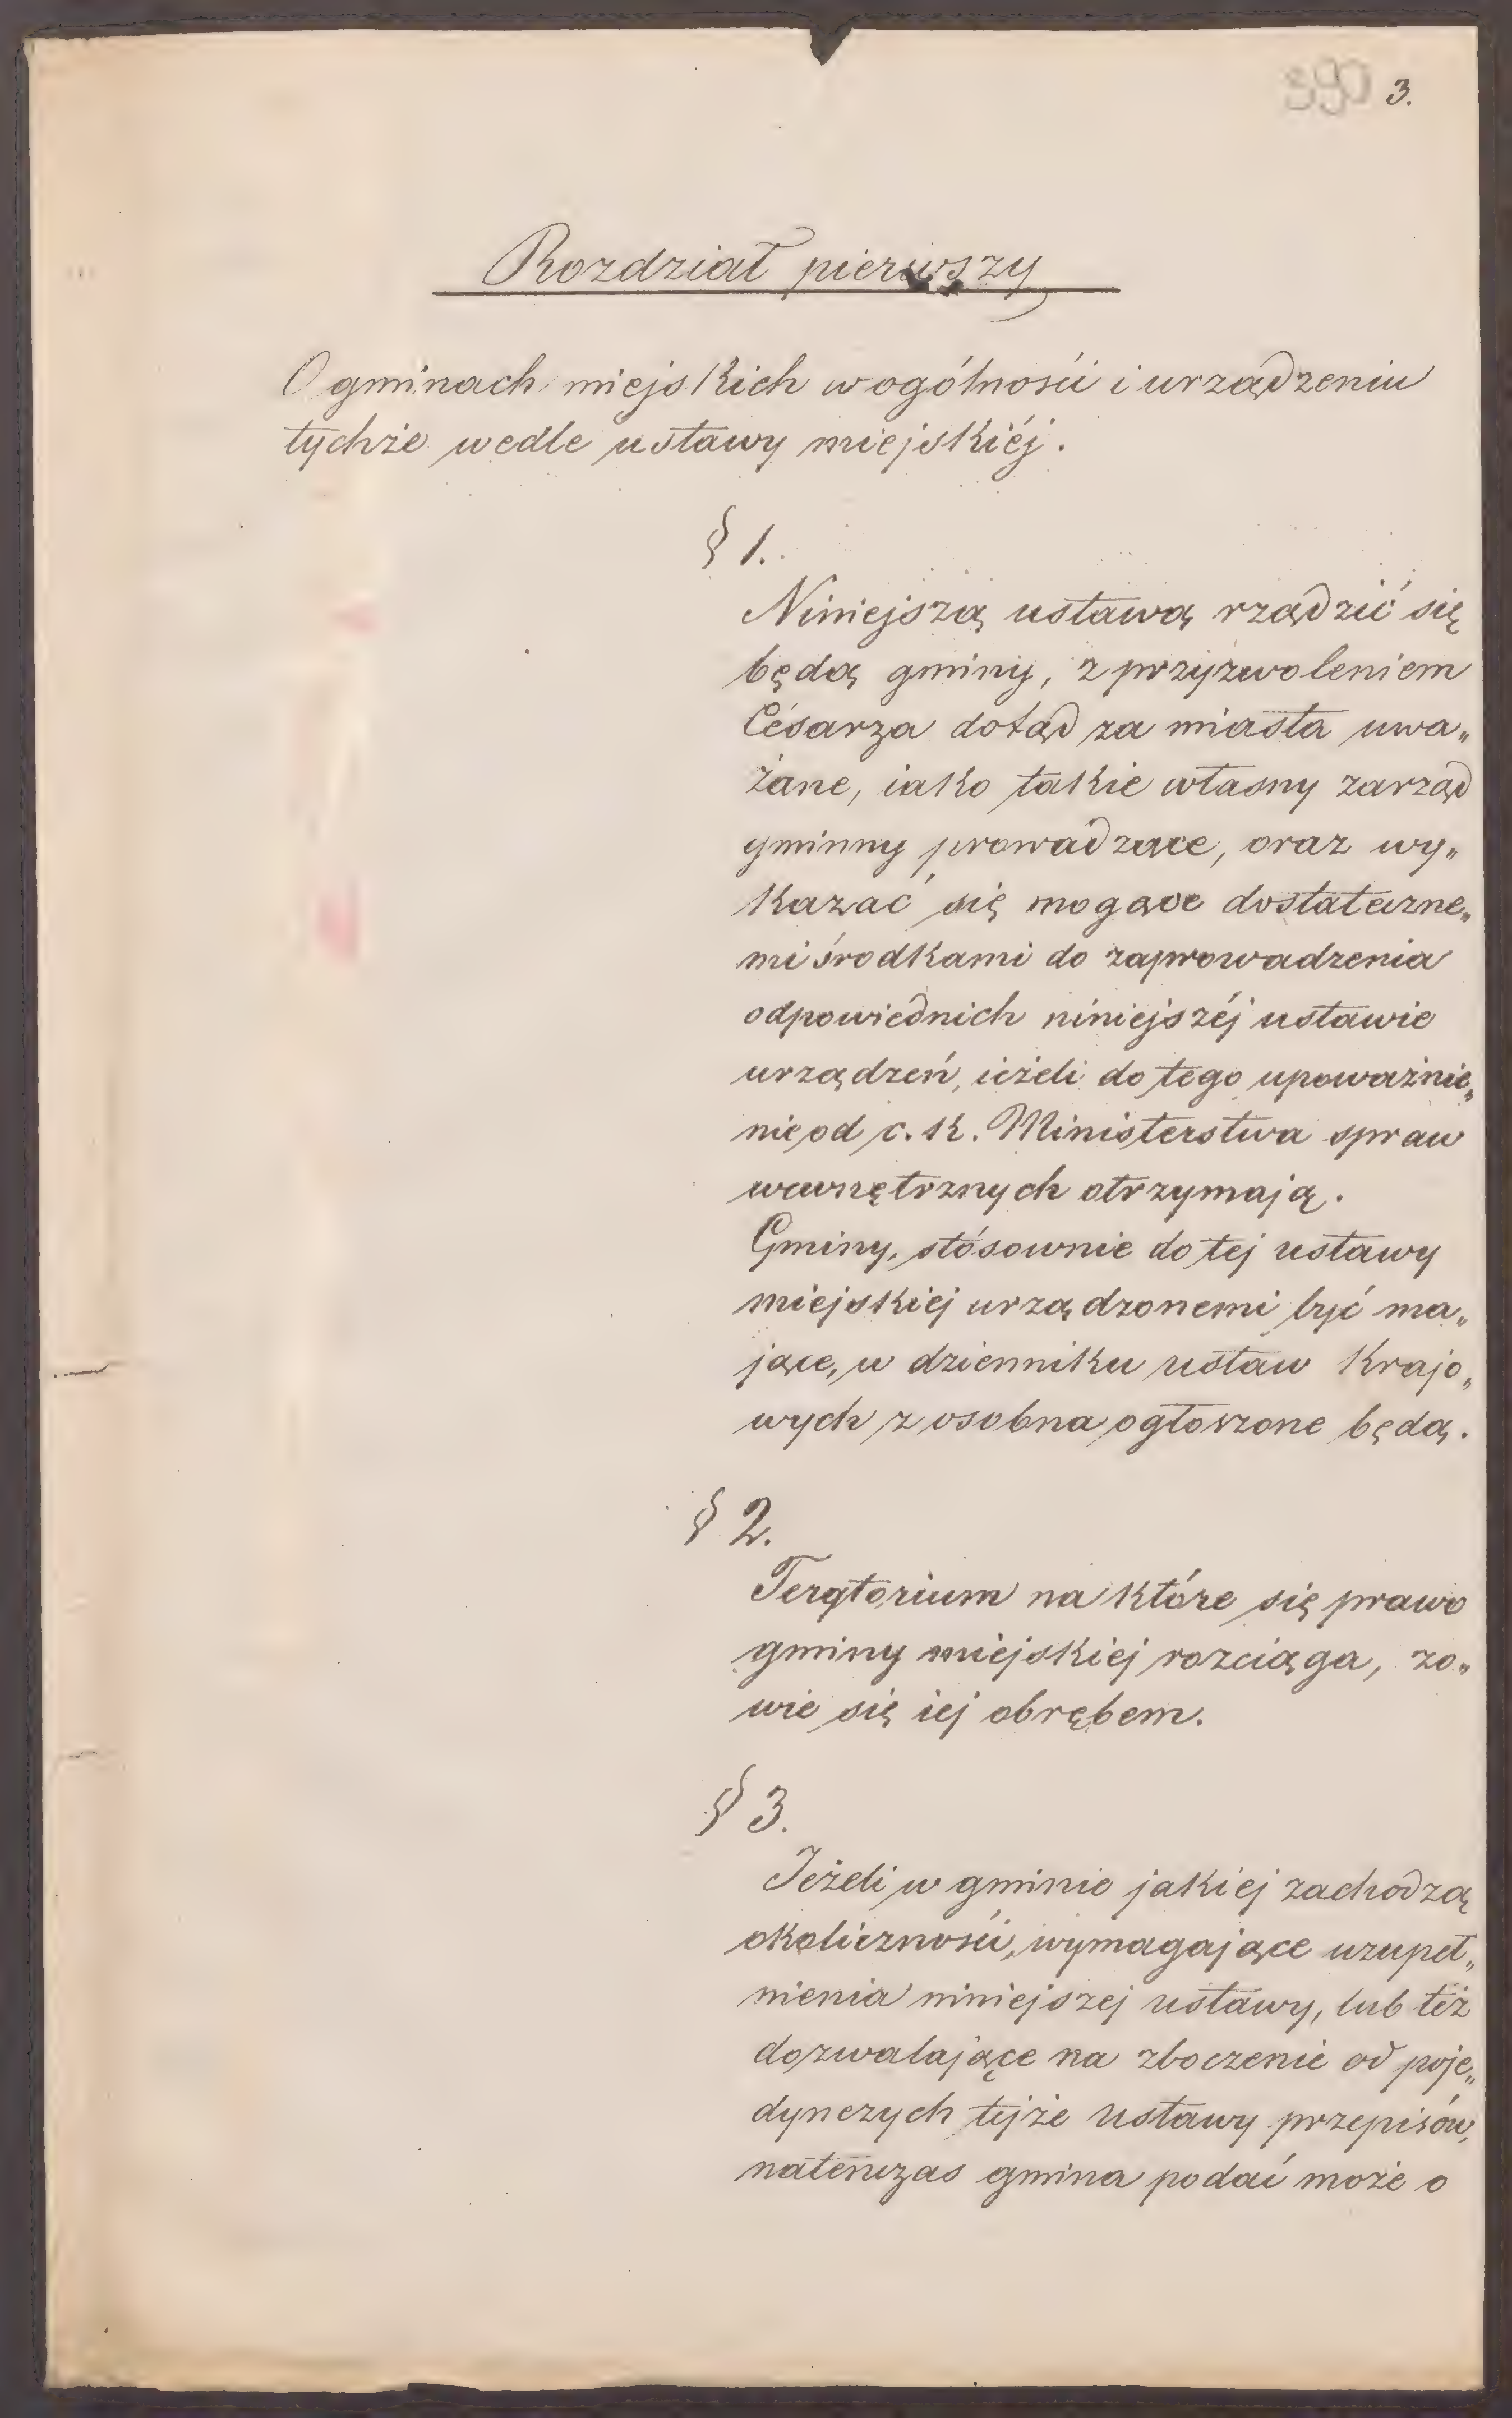 390 3.
Rozdział pierwszy
O gminach miejskich w ogólności i urządzeniu
tychże wedle ustawy miejskiéj.
§ 1.
Niniejszą ustawą rządzić się
będą gminy, z przyzwoleniem
Césarza dotąd za miasta uwa„
żane, iako takie własny zarząd
gminny prowadzące, oraz wy„
kazać się mogące dostateczne„
mi środkami do zaprowadzenia
odpowiednich niniejszéj ustawie
urządzeń, ieżeli do tego upoważnie„
nie od c. k. Ministerstwa spraw
wewnętrznych otrzymają.
Gminy, stósownie do tej ustawy
miejskiej urządzonemi być ma„
jące, w dzienniku ustaw krajo„
wych z osobna ogłoszone będą.
§ 2.
Terytorium na które się prawo
gminy miejskiej rozciąga, zo„
wie się iej obrębem.
§ 3.
Jeżeli w gminie jakiej zachodzą
okoliczności, wymagające uzupeł„
nienia niniejszej ustawy, lub też
dozwalające na zboczenie od poje„
dynczych tejże ustawy przepisów,
natenczas gmina podać może o